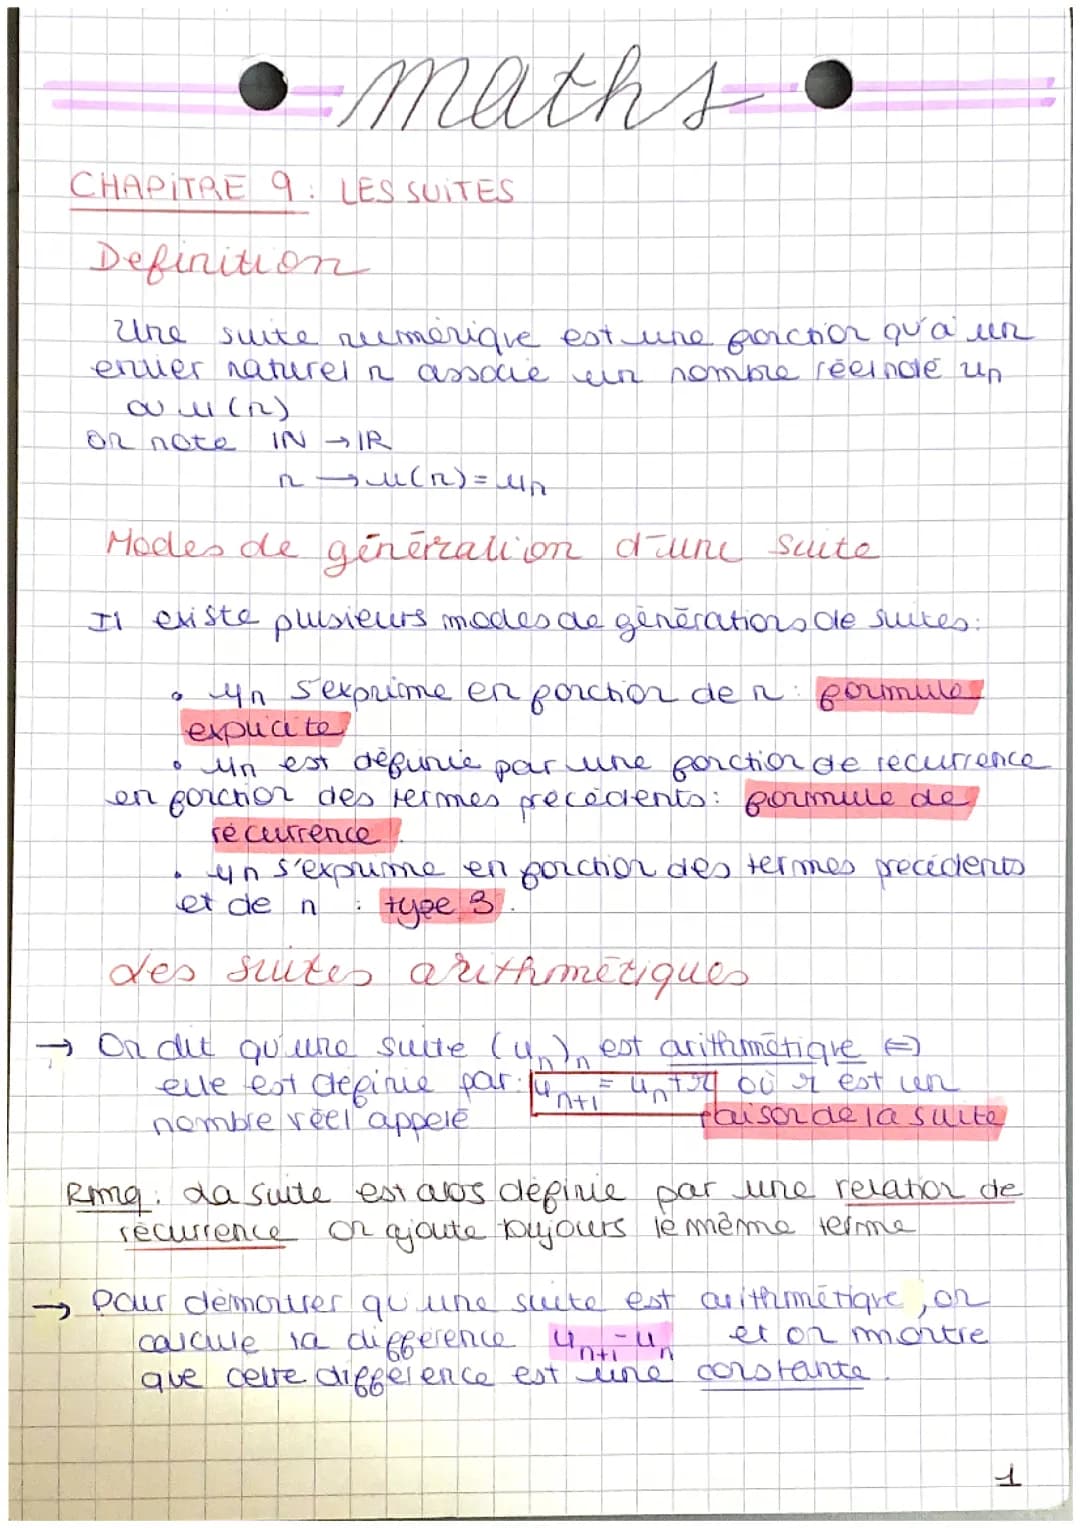 maths
CHAPITRE 9 : LES SUITES
Definition
Une suite numérique est une fonction qu'a un
entier naturel n associe un nombre réel noté un
ou u(n)
on note IN → IR
n → u(n) = un
Modes de génération d'une suite
Il existe plusieurs modes de générations de suites :
• un s'exprime en fonction de n : formule
explicite
• un est définie par une fonction de récurrence
en fonction des termes précédents : formule de
récurrence.
• un s'exprime en fonction des termes precédents
et de n : type 3.
Les suites arithmétiques
→ On dit qu'une suite (un)n est arithmétique ⇔
elle est définie par : un+1 = un + r où r est un
nombre réel appelé raison de la suite
Rmq : La suite est alors définie par une relation de
récurrence on ajoute toujours le même terme
→ Pour démontrer qu'une suite est arithmétique, on
calcule la différence un+1 - un et on montre
que cette différence est une constante.
1